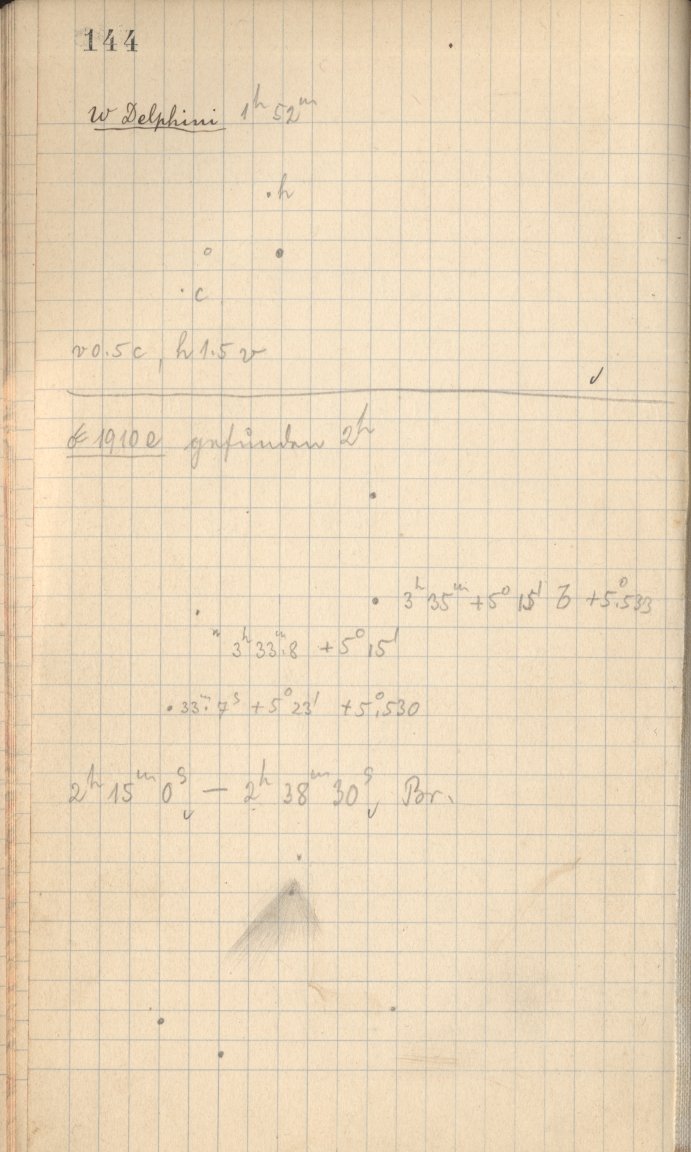 144
W Delphini 1h 52m
h
c
v 0.5 c, h 1.5 v
1910e gefunden 2h
3h 35m +5° 15' +5°.533
3h 33m.8 +5° 15'
33m.7s +5° 23' +5°.530
2h 15m 0s — 2h 38m 30s Br.